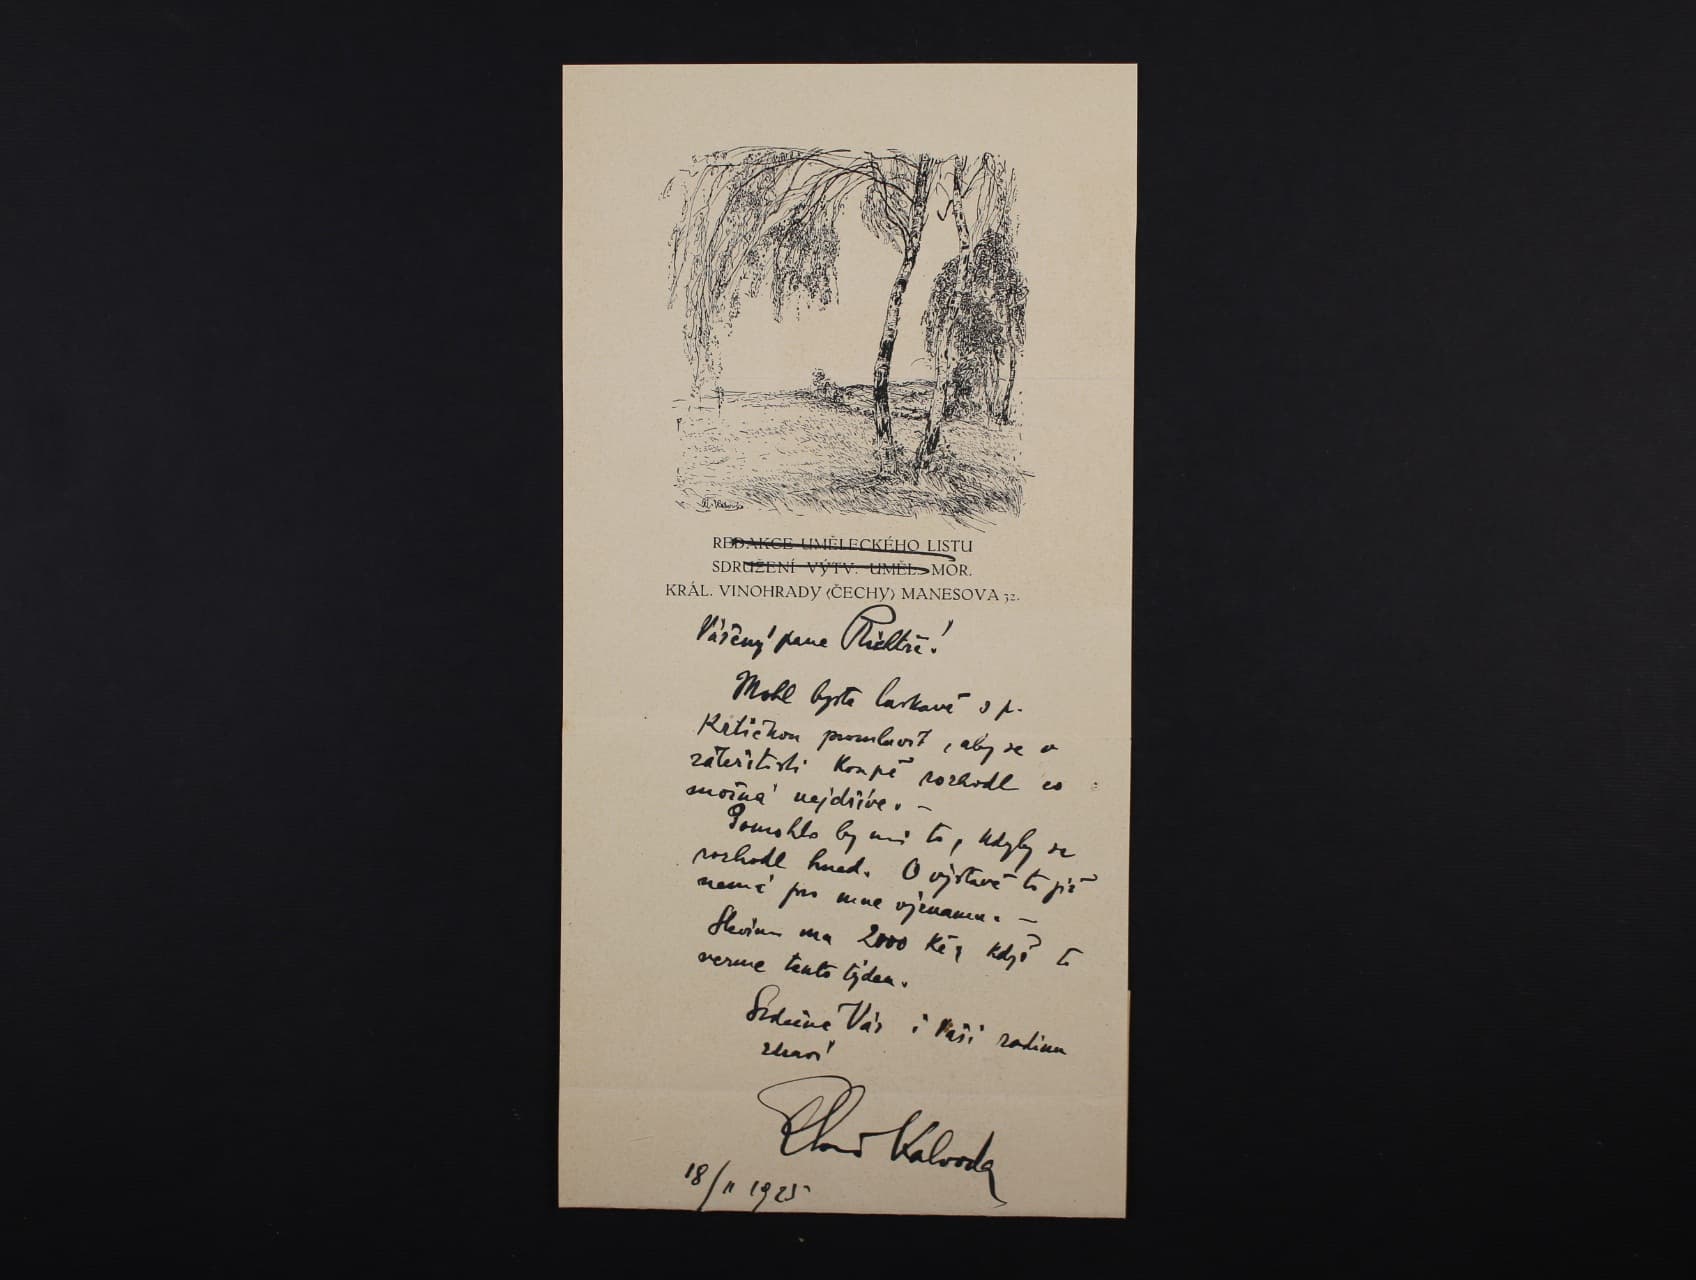 REDAKCE UMĚLECKÉHO LISTU
SDRUŽENÍ VÝTV. UMĚL. MOR.
KRÁL. VINOHRADY (ČECHY) MANESOVA 32.
Vážený pane Richtře!
Mohl byste laskavě s p.
Kritičkou promluvit, aby se v
záležitosti koupě rozhodl co
možná nejdříve. –
Pomohlo by mi to, kdyby se
rozhodl hned. O výstavě to již
nemá pro mne významu. –
Slevím mu 2000 Kč, když to
vezme tento týden.
Srdečně Vás i Vaši rodinu
zdraví
Alois Kalvoda
18/II 1925